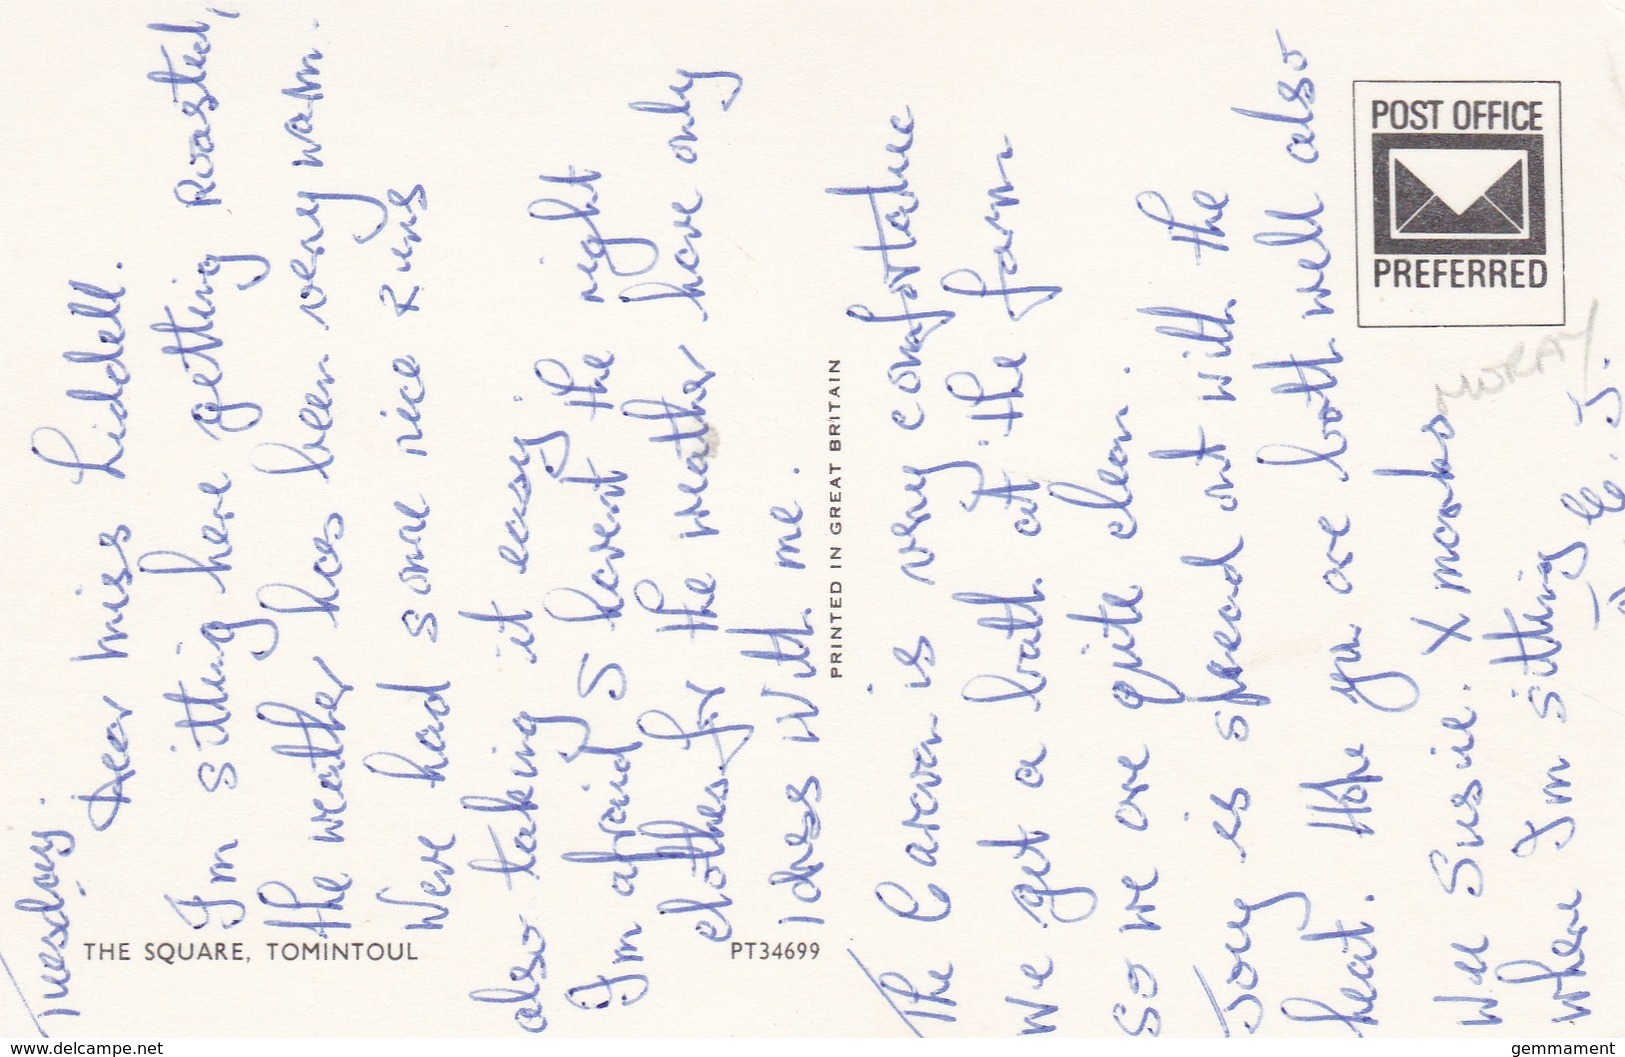 Tuesday.
Dear Miss Liddell.
I'm sitting here getting Roasted,
the weather has been very warm.
Weve had some nice Runs
also taking it easy.
I'm afraid I havent the right
clothes for the weather have only
1 dress with me.
The Caravan is very comfortable
We get a bath at the farm
So we are quite clean.
Joey is spread out with the
heat. Hope you are both well also
Wee Susie. X marks
where I'm sitting
MORAY
THE SQUARE, TOMINTOUL
PT34699
PRINTED IN GREAT BRITAIN
POST OFFICE
PREFERRED
www.delcampe.net
gemmament